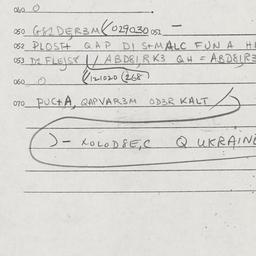 040 O
050 G8 1 DER3M (029030 051 —
052 PLOST+ QAP D1 S+MALC FUN A H
053 D2 FLEJS8 // ABD81, RK3 QH = ABD81R3
060 O (121020 (268)
070 PUC+A, QAPVAR3M OD3R KALT /
) – XOLOD8E,C Q UKRAIN